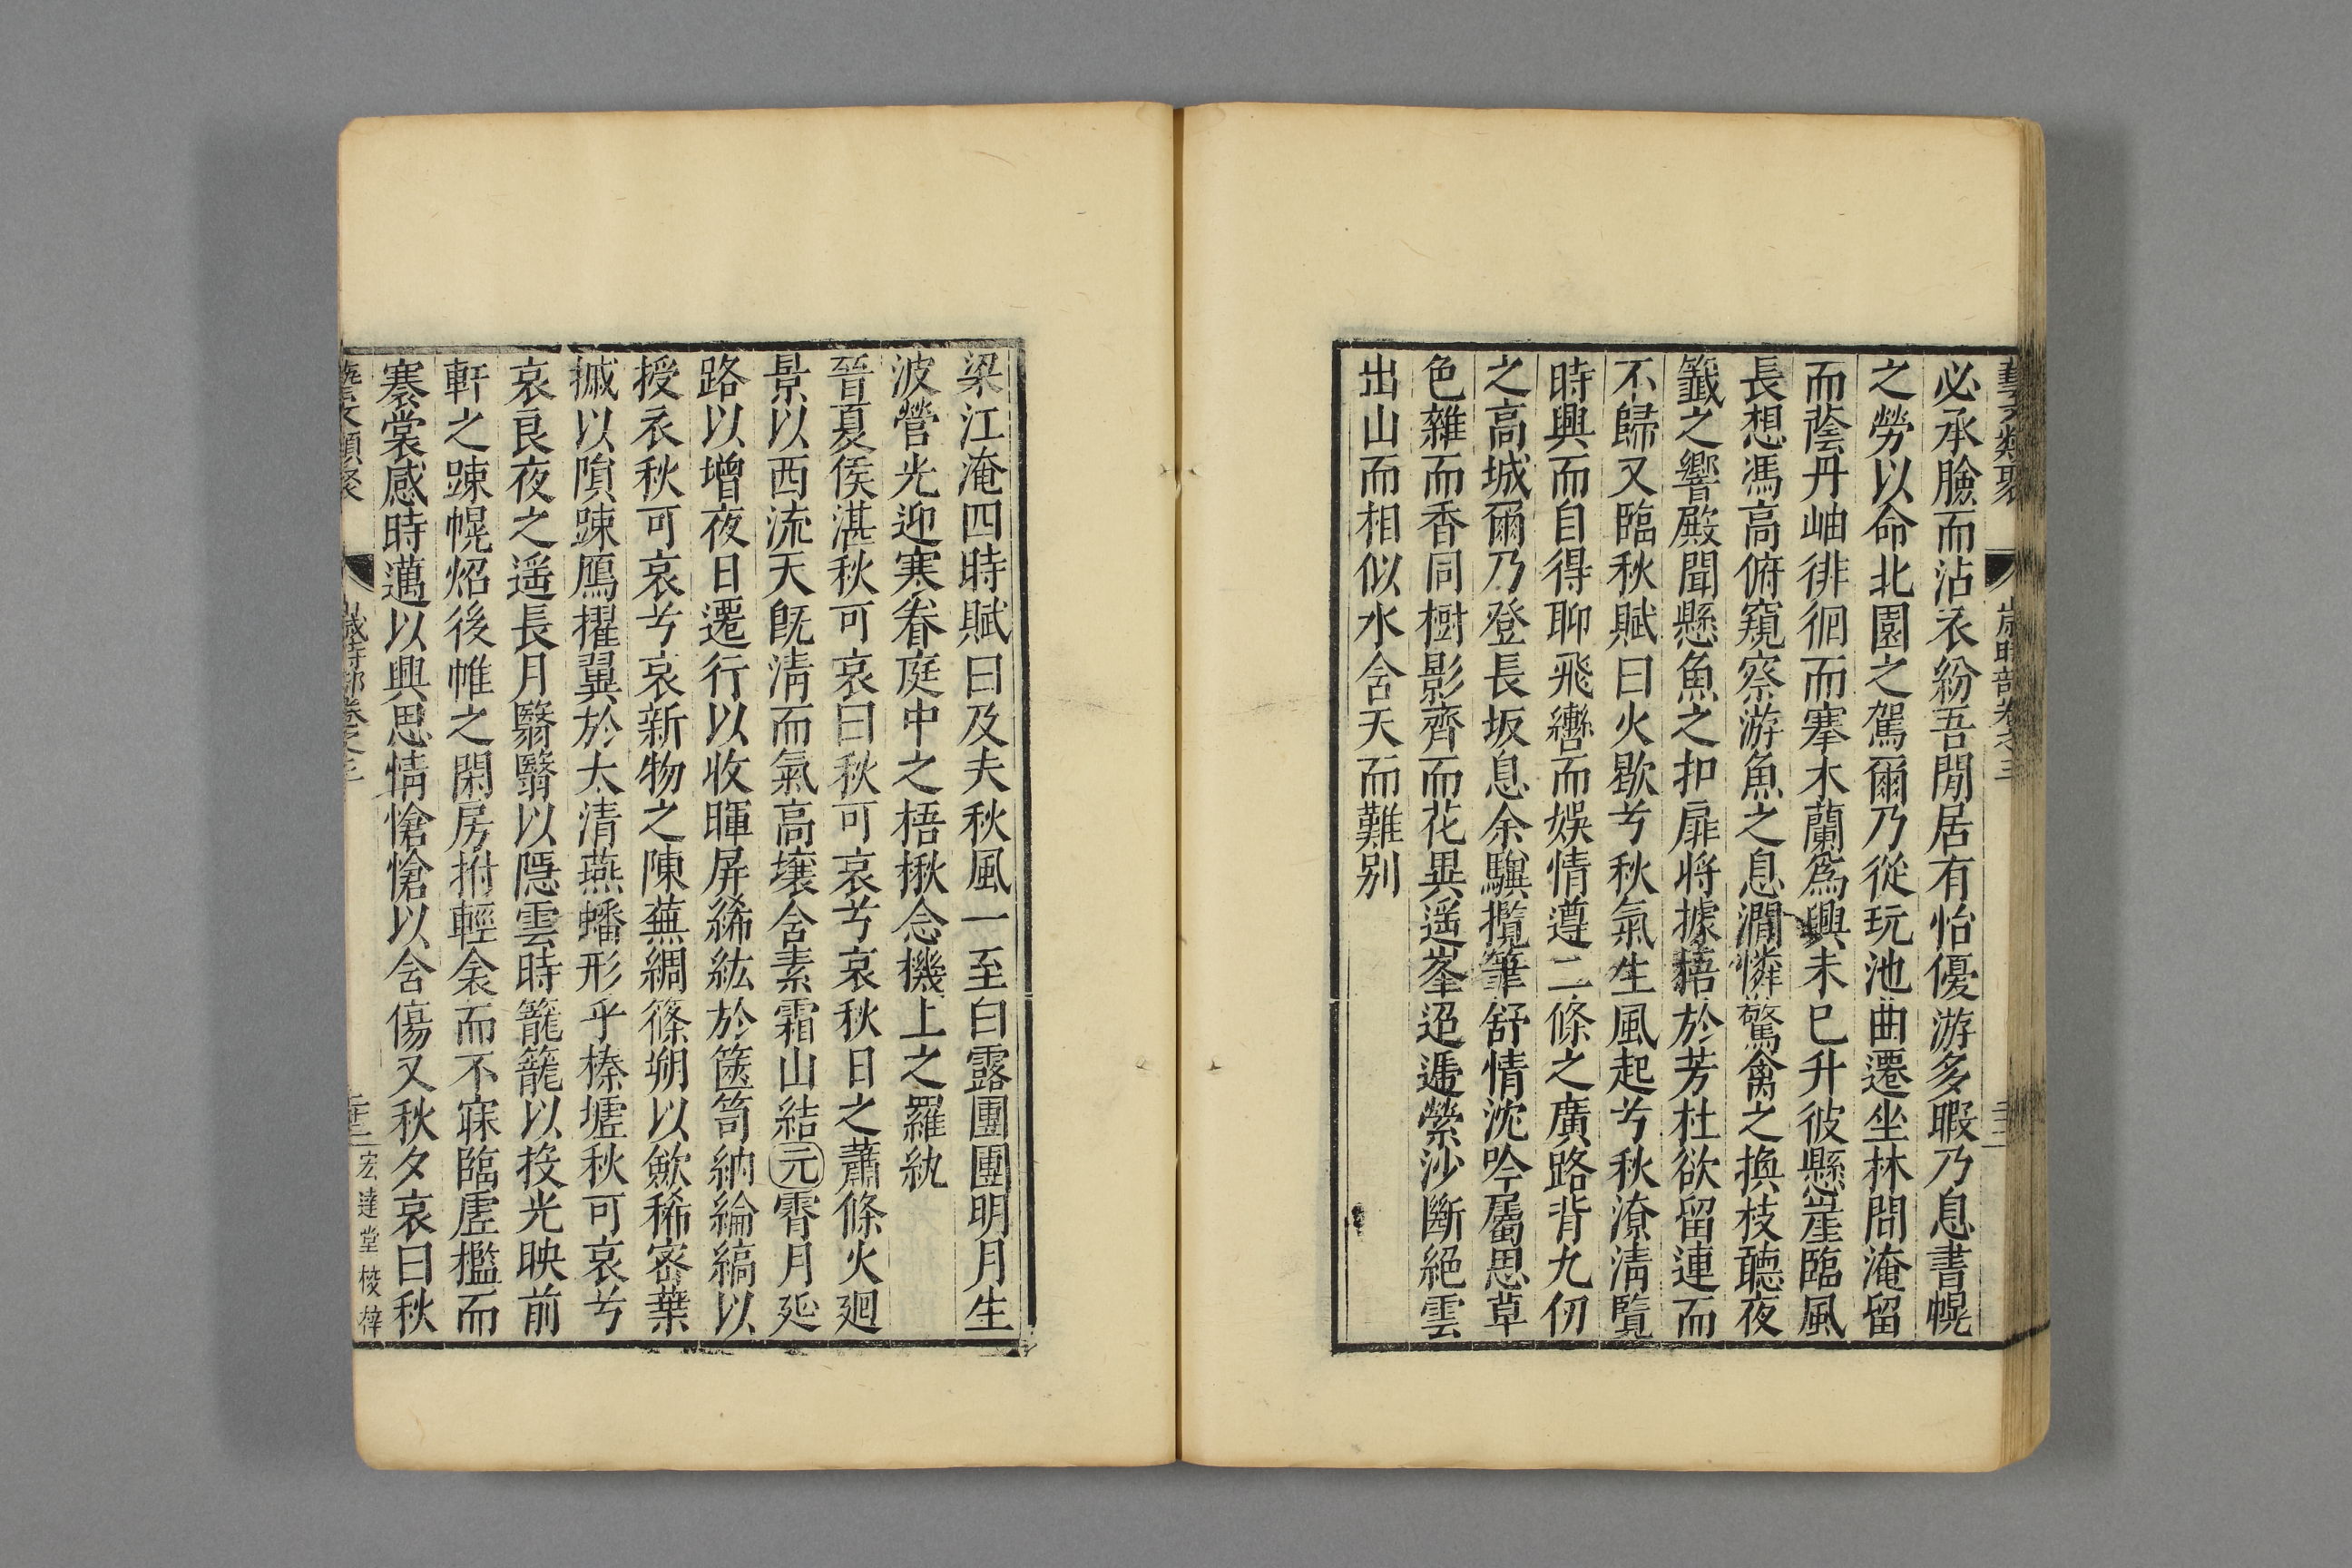 藝文類聚 歲時部卷之三
必承臉而沾衣紛吾閒居有怡優游多暇乃息書幌
之勞以命北園之駕爾乃從玩池曲遷坐林間淹留
而蔭丹岫徘徊而搴木蘭為興未已升彼懸崖臨風
長想馮高俯窺察游魚之息澗憐驚禽之換枝聽夜
籤之響殿聞懸魚之扣扉將據梧於芳杜欲留連而
不歸又臨秋賦曰火歇兮秋氣生風起兮秋潦清覽
時興而自得聊飛轡而娛情遵二條之廣路背九仞
之高城爾乃登長坂息余驥攬筆舒情沈吟屬思草
色雜而香同樹影齊而花異遥峯迢遞縈沙斷絕雲
出山而相似水含天而難别
梁江淹四時賦曰及夫秋風一至白露團團明月生
波營光迎寒眷庭中之梧楸念機上之羅紈
晉夏侯湛秋可哀曰秋可哀兮哀秋日之蕭條火廻
景以西流天旣淸而氣高壤含素霜山結元霄月延
路以增夜日遷行以收暉屏絺紘於篋笥納綸縞以
授衣秋可哀兮哀新物之陳蕪綢篠朔以斂稀密葉
摵以隕踈鴈擢翼於太清燕蟠形乎榛墟秋可哀兮
哀良夜之遥長月翳翳以隱雲時籠籠以投光映前
軒之踈幌炤後帷之閑房拊輕衾而不寐臨虛檻而
褰裳感時邁以興思情愴愴以含傷又秋夕哀曰秋
藝文類聚 歲時部卷之三 宏達堂校梓